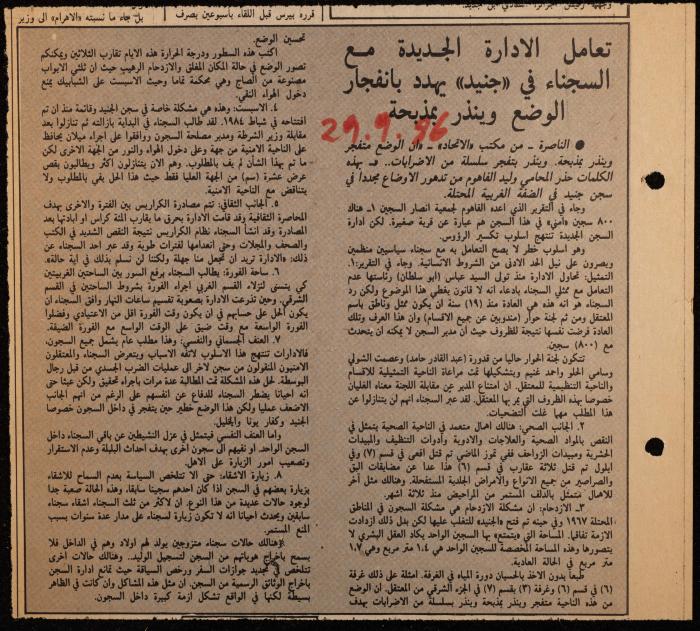 وجهه رئيس الجزائر الشاذلي بن جديد.
قرره بيرس قبل اللقاء بأسبوعين بصرف
بل جاء ما نسبته «الاهرام» الى وزير
تعامل الادارة الجديدة مع
السجناء في «جنيد» يهدد بانفجار
الوضع وينذر بمذبحة
29.9.86
● الناصرة ـ من مكتب «الاتحاد» ـ «ان الوضع متفجر
وينذر بمذبحة. وينذر بتفجر سلسلة من الاضرابات.. فـ بهذه
الكلمات حذر المحامي وليد الفاهوم من تدهور الاوضاع مجددا في
سجن جنيد في الضفة الغربية المحتلة.
وجاء في التقرير الذي اعده الفاهوم لجمعية انصار السجين ١ـ هناك
٨٠٠ سجين «أمني» في هذا السجن هم عبارة عن قرية صغيرة. لكن ادارة
السجن الجديدة تنتهج اسلوب تكسير الرؤوس.
وهو اسلوب خطر لا يصح التعامل به مع سجناء سياسيين منظمين
ويصرون على نيل الحد الادنى من الشروط الانسانية. وجاء في التقرير:١.
التمثيل: تحاول الادارة منذ تولى السيد عباس (ابو سلطان) رئاستها عدم
التعامل مع ممثلي السجناء بادعاء انه لا قانون يغطي هذا الموضوع ولكن رد
السجناء هو انه هذه هي العادة منذ (١٩) سنة ان يكون ممثل وناطق باسم
المعتقل ومن ثم لجنة حوار (مندوبين عن جميع الاقسام) وان هذا العرف وتلك
العادة فرضت نفسها نتيجة للظروف حيث أن مدير السجن لا يمكنه ان يتحدث
مع (٨٠٠) سجين.
تتكون لجنة الحوار حاليا من قدورة (عبد القادر حامد) وعصمت الشولي
وسامي الحلو واحمد غنيم وبتشكيلها تمت مراعاة الناحية التمثيلية للاقسام
والناحية التنظيمية للمعتقل. ان امتناع المدير عن مقابلة اللجنة معناه الغليان
خصوصا بهذه الظروف التي يمر بها المعتقل. لقد عبر السجناء انهم لن يتنازلوا عن
هذا المطلب مهما غلت التضحيات.
٢. الجانب الصحي: هنالك اهمال متعمد في الناحية الصحية يتمثل في
النقص بالمواد الصحية والعلاجات والادوية وأدوات التنظيف والمبيدات
الحشرية ومبيدات الزواحف ففي تموز الماضي تم قتل افعى في قسم (٧) وفي
ايلول تم قتل ثلاثة عقارب في قسم (٦) هذا عدا عن مضايقات البق
والصراصير من جميع الانواع والأمراض الجلدية المستفحلة. وهنالك مثل آخر
للاهمال يتمثل بالدلف المستمر من المراحيض منذ ثلاثة اشهر.
٣ـ الازدحام: ان مشكلة الازدحام هي مشكلة السجون في المناطق
المحتلة ١٩٦٧ وفي حينه تم فتح «الجنيد» للتغلب عليها لكن بدل ذلك ازدادت
الازمة تفاقها. المساحة التي «يتمتع» بها السجين الواحد يكاد العقل البشري لا
يتصورها وهذه المساحة المخصصة للسجين الواحد هي ١.٤ متر مربع وهي ١.٧
متر مربع في الحالة العادية.
طبعا بدون الاخذ بالحسبان دورة المياه في الغرفة. امثلة على ذلك غرفة
(٦) في قسم (٦) وغرفة (٣) بقسم (٧) في الجزء الشرقي من المعتقل. ان الوضع
من هذه الناحية متفجر وينذر بمذبحة وينذر بسلسلة من الاضرابات بهدف
تحسين الوضع.
اكتب هذه السطور ودرجة الحرارة هذه الايام تقارب الثلاثين ويمكنكم
تصور الوضع في حالة المكان المغلق والازدحام الرهيب حيث ان ثلثي الابواب
مصنوعة من الصاج وهي محكمة تماما وحيث الاسبست على الشبابيك يمنع
دخول الهواء النقي.
٤. الاسبست: وهذه هي مشكلة خاصة في سجن الجنيد وقائمة منذ ان تم
افتتاحه في شباط ١٩٨٤. لقد طالب السجناء في البداية بازالته ثم تنازلوا بعد
مقابلة وزير الشرطة ومدير مصلحة السجون ووافقوا على اجراء ميلان يحافظ
على الناحية الامنية من جهة وعلى دخول الهواء والنور من الجهة الاخرى لكن
ما تم بهذا الشأن لم يف بالمطلوب. وهم الان يتنازلون اكثر ويطالبون بقص
عرض عشرة (سم) من الجهة العليا فقط حيث هذا الحل يفي بالمطلوب ولا
يتناقض مع الناحية الامنية.
٥. الجانب الثقافي: تتم مصادرة الكراريس بين الفترة والاخرى بهدف
المحاصرة الثقافية وقد قامت الادارة بحرق ما يقارب المئة كراس او ابادتها بعد
المصادرة وقد انشأ السجناء نظام الكراريس نتيجة النقص الشديد في الكتب
والصحف والمجلات وحتى انعدامها لفترات طوية وقد عبر احد السجناء عن
ذلك: «الادارة تريد ان تجعل منا جهلة ولكننا لن نسلم بذلك في اية حالة».
٦. ساحة الفورة: يطالب السجناء برفع السور بين الساحتين الغربيتين
كي يتسنى لنزلاء القسم الغربي اجراء الفورة بشروط الساحتين في القسم
الشرقي. وحين تذرعت الادارة بصعوبة تقسيم ساعات النهار وافق السجناء ان
يكون الحل على حسابهم في ان يكون وقت الفورة اقل من الاعتيادي وفضلوا
الفورة الواسعة مع وقت ضيق على الوقت الواسع مع الفورة الضيقة.
٧. العنف الجسماني والنفسي: وهذا مطلب عام يشمل جميع السجون.
فالادارات تنتهج هذا الاسلوب لاتفه الاسباب ويتعرض السجناء والمعتقلون
الامنيون المنقولون من سجن لاخر الى عمليات الضرب الجسدي من قبل رجال
البوسطة. لحل هذه المشكلة تمت المطالبة عدة مرات باجراء تحقيق ولكن عبثا حتى
انه احيانا يضطر السجناء للدفاع عن انفسهم على الرغم من انهم الجانب
الاضعف عمليا ولكن هذا الوضع خطير حين يتفجر في داخل السجون خصوصا
الجنيد وكفار يونا والخليل.
واما العنف النفسي فيتمثل في عزل النشيطين عن باقي السجناء داخل
السجن الواحد. او نفيهم الى سجون اخرى بهدف احداث البلبلة وعدم الاستقرار
وتصعيب امور الزيارة على الاهل.
٨. زيارة الاشقاء: حتى الا تتخلص السياسة بعدم السماح للاشقاء
بزيارة بعضهم في السجن اذا كان احدهم سجينا سابقا، وهذه الحالة صعبة جدا
لوجود حالات عديدة من هذا النوع. ان لاكثر من ثلث السجناء اشقاء سجناء
سابقين ويحدث احيانا انه لا تكون زيارة لسجناء على مدار عدة سنوات بسبب
المنع المستمر.
وهنالك حالات سجناء متزوجين يولد لهم اولاد وهم في الداخل فلا
يسمح باخراج هوياتهم من السجن لتسجيل الوليد. وهنالك حالات أخرى
تتلخص في تجديد جوازات السفر ورخص السياقة حيث تمانع ادارة السجن
باخراج الوثائق الرسمية من السجن. ان مثل هذه المشاكل وان كانت في الظاهر
بسيطة لكنها في الواقع تشكل ازمة كبيرة داخل السجون.